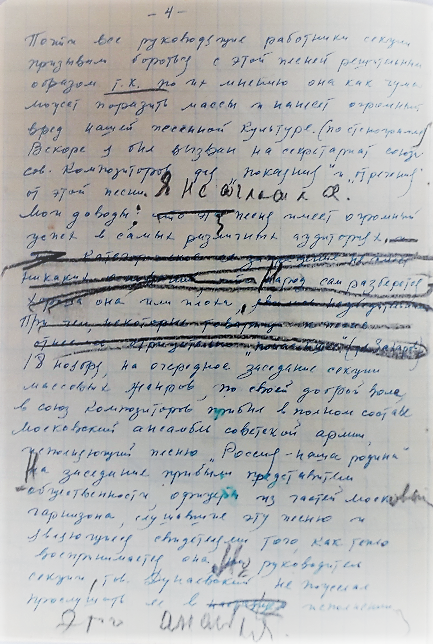 - 4 -
Почти все руководящие работники секции
призывали бороться с этой песней решительным
образом, т.к. по их мнению она как чума
может поразить массы и нанесет огромный
вред нашей песенной культуре. (по стенограмме)
Вскоре я был вызван на секретариат союза
сов. композиторов для "покаяния" и "отречения"
от этой песни. Я не
Мои доводы: что эта песня имеет огромный
успех в самых различных аудиториях.
народ сам разберется
хороша она или плоха,
18 ноября, на очередное заседание секции
массовых жанров, по своей доброй воле,
в союз композиторов прибыл в полном составе
московский ансамбль советской армии,
исполняющий песню "Россия - наша родина"
На заседание прибыли представители
общественности, офицеры из частей московского
гарнизона, слушавшие эту песню и
являющиеся свидетелями того, как тепло
воспринимается она. Но руководитель
секции, тов. Дунаевский не пожелал
прослушать ее в исполнении
Этого